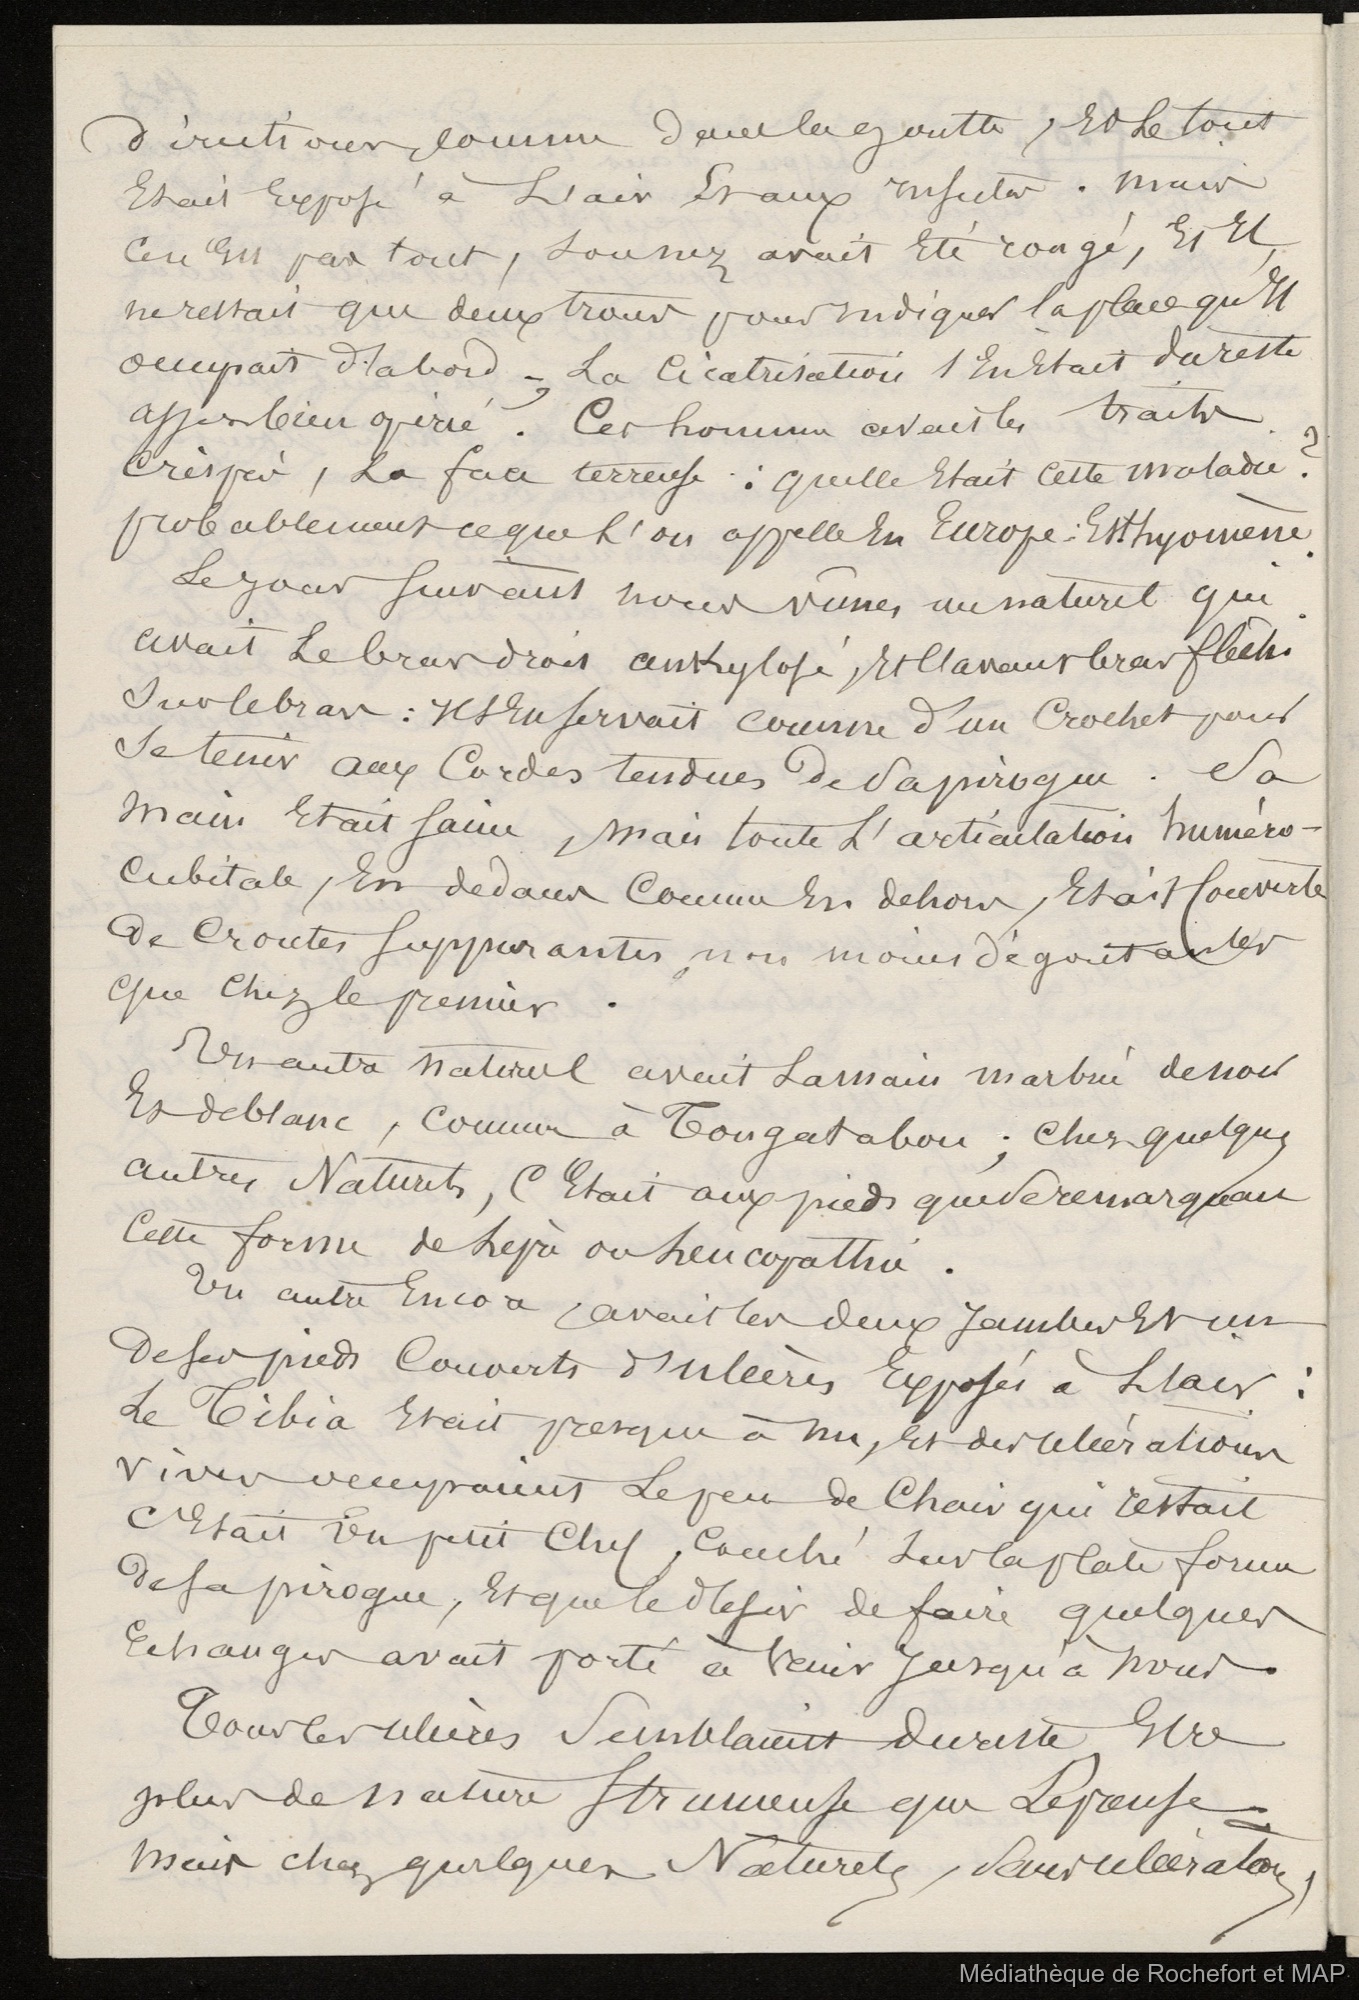 d'incrustations, comme dans la goutte, Et Le tout
Etait Exposé à L'air Et aux insectes. Mais
Ce n'Est pas tout, Son nez avait Eté rongé, Et Il
ne restait que deux trous pour indiquer la place qu'Il
occupait d'abord. La Cicatrisation s'En Etait du reste
assez bien opérée. Cet homme avait les traits
Crispés, La face terreuse : quelle Etait Cette maladie ?
probablement ce que L'on appelle En Europe : Esthyomène.
Le jour suivant nous vîmes un naturel qui
avait Le bras droit ankylosé, Et l'avant bras fléchi
Sur le bras : Il s'En servait comme d'un Crochet pour
Se tenir aux Cordes tendues De Sa pirogue. Sa
main Etait saine, mais toute L'articulation huméro-
cubitale, En dedans Comme En dehors, Etait Couverte
de Croutes suppurantes, non moins dégoutantes
que Chez le premier.
Un autre naturel avait La main marbrée de noir
Et de blanc, Comme à Tongatabou ; Chez quelques
autres Naturels, C'Etait aux pieds que Se remarquait
Cette forme de lèpre ou leucopathie.
Un autre Encore, avait les deux Jambes Et un
De ses pieds Couverts d'ulcères Exposés à L'air :
Le Tibia Etait presque à nu, Et des ulcérations
vives occupaient Le peu de Chair qui restait
C'Etait Un petit Chef, Couché Sur la plate forme
De sa pirogue, Et que le désir de faire quelques
Echanges avait porté à Venir Jusqu'à nous.
Tous les ulcères Semblaient du reste Etre
plus de nature strumeuse que Lépreuse.
Mais chez quelques Naturels, Sans ulcérations,
Médiathèque de Rochefort et MAP